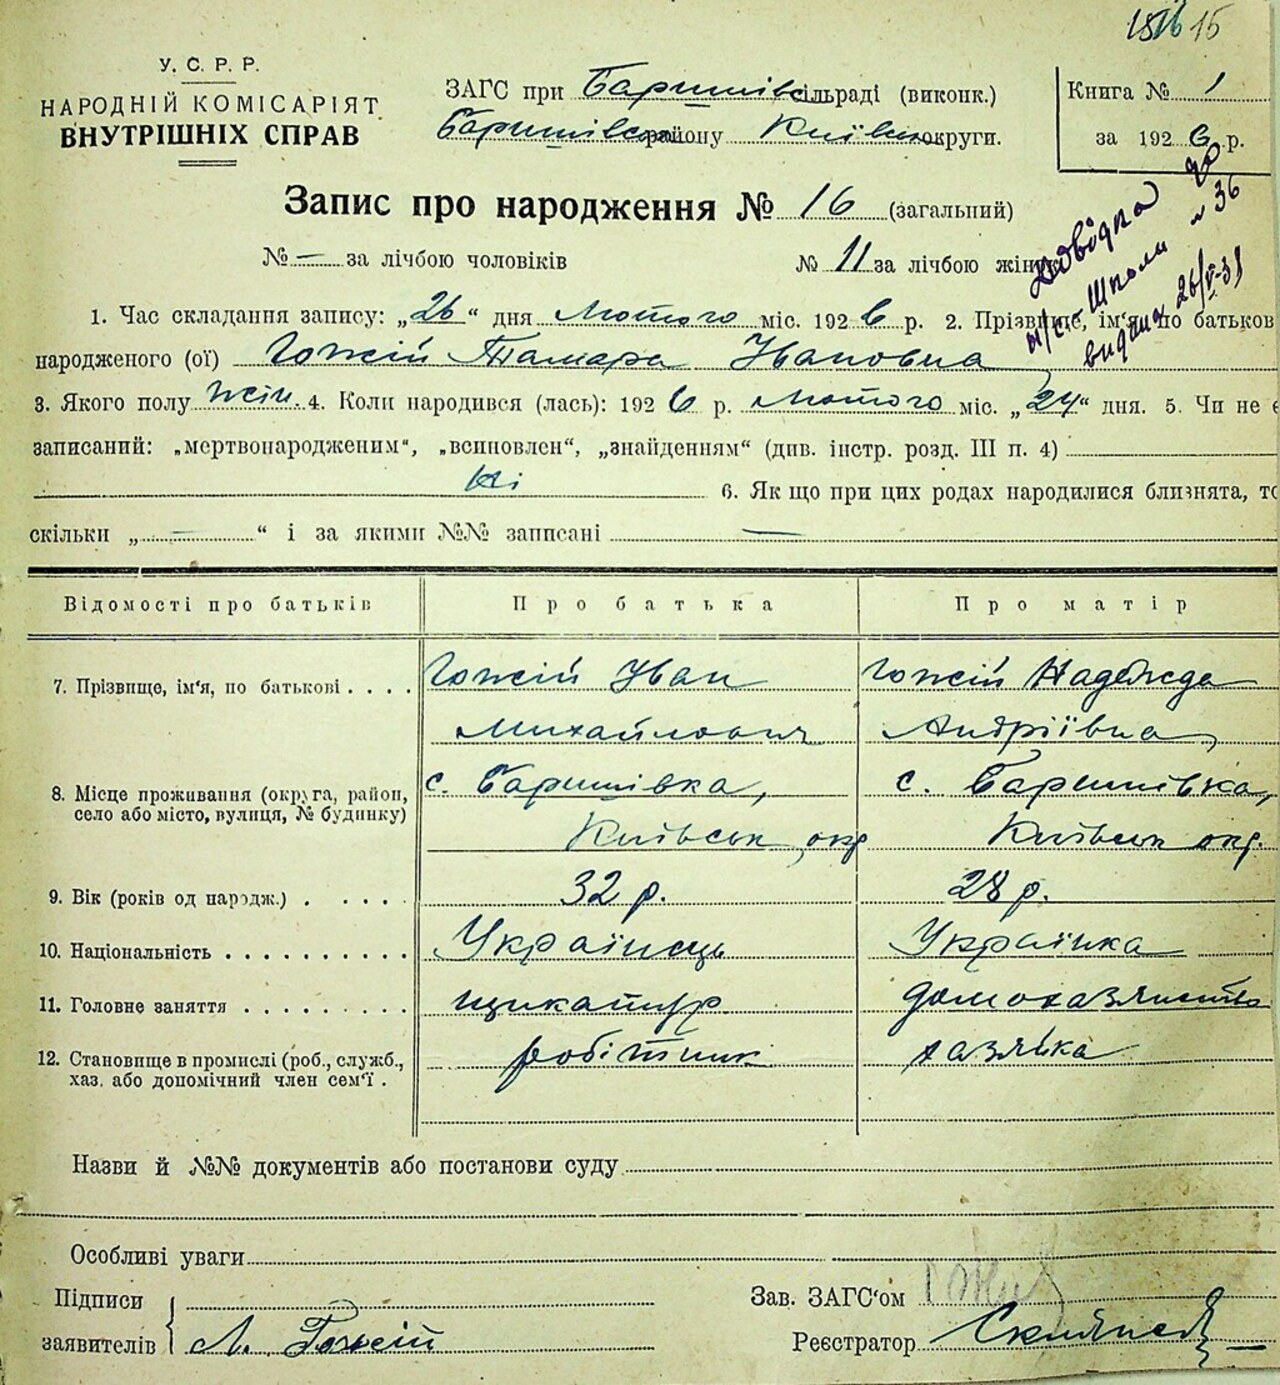 15
У. С. Р. Р.
НАРОДНІЙ КОМІСАРІЯТ
ВНУТРІШНІХ СПРАВ
ЗАГС при Баришівс сільраді (виконк.)
Баришівськ району Київськ округи.
Книга № 1
за 1926 р.
Запис про народження № 16 (загальний)
№ — за лічбою чоловіків № 11 за лічбою жінок
Довідка до
школи № 36
видана 26/V-31
1. Час складання запису: „26“ дня Лютого міс. 1926 р. 2. Прізвище, ім'я, по батьков
народженого (ої) Гожій Тамара Івановна
3. Якого полу жін. 4. Коли народився (лась): 1926 р. лютого міс. „24“ дня. 5. Чи не є
записаний: „мертвонародженим“, „всиновлен“, „знайденням“ (див. інстр. розд. III п. 4)
ні 6. Як що при цих родах народилися близнята, то
скільки „ — “ і за якими №№ записані —
Відомості про батьків Про батька Про матір
7. Прізвище, ім'я, по батькові . . . . Гожій Іван Гожій Надежда
Михайлович Андріївна
8. Місце проживання (округа, район, с. Баришівка, с. Баришівка,
село або місто, вулиця, № будинку)
Київськ окр Київськ окр.
9. Вік (років од народж.) . . . . . 32 р. 28 р.
10. Національність . . . . . . . . . . Українець Українка
11. Головне заняття . . . . . . . . . щикатур домохазяйство
12. Становище в промислі (роб., служб., робітник хазяйка
хаз. або допомічний член сем'ї .
Назви й №№ документів або постанови суду
Особливі уваги
Підписи Зав. ЗАГС'ом
заявителів Л. Гожій Реєстратор